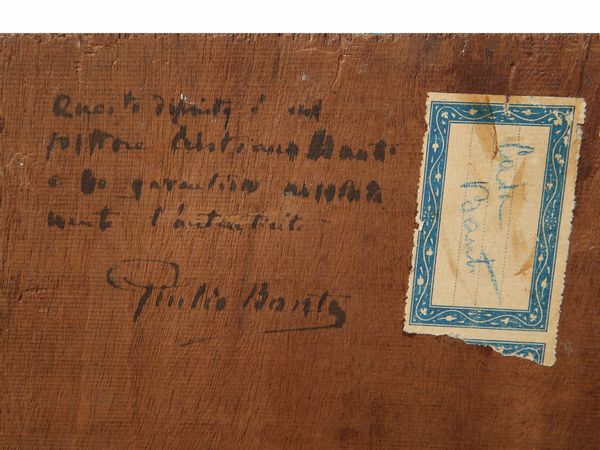 Questo dipinto è del
pittore Cristiano Banti
e ne garantisco assoluta
mente l'autenticità
Giulio Banti
Banti